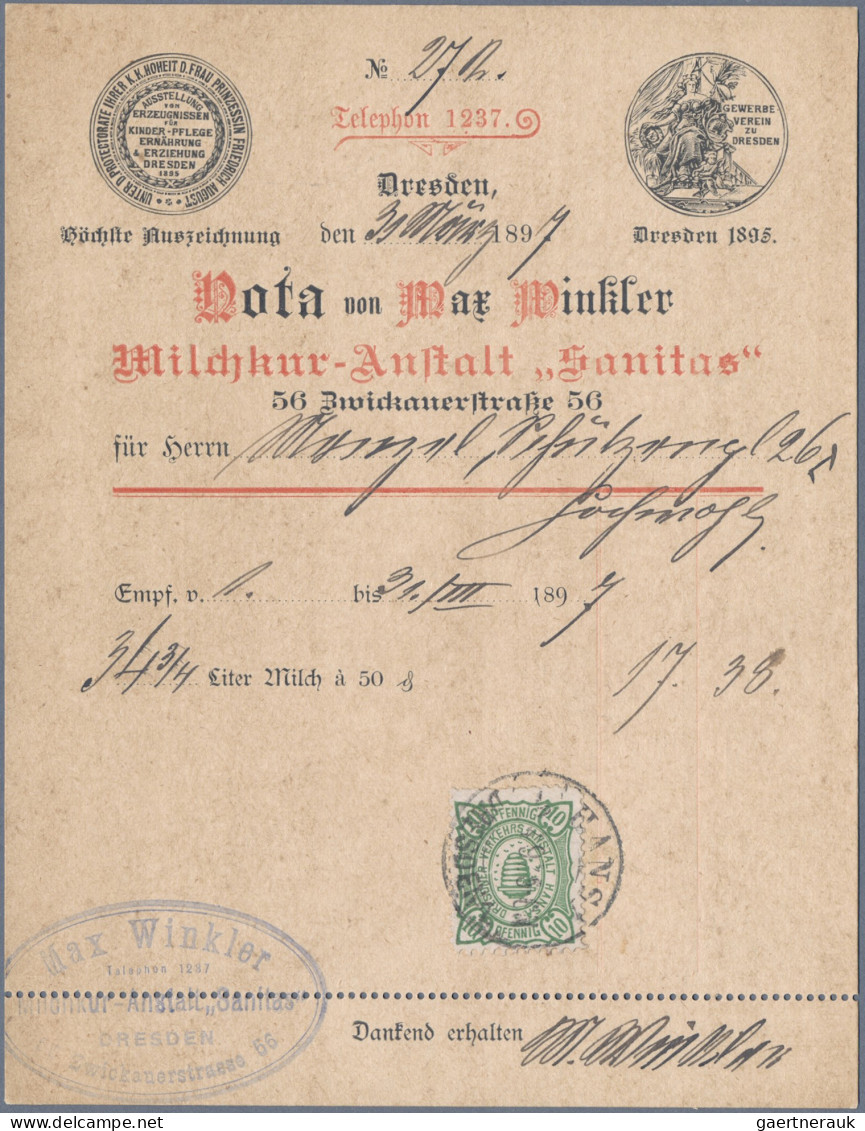 № 272.
Telephon 1237.
UNTER D. PROTECTORATE IHRER K.K. HOHEIT D. FRAU PRINZESSIN FRIEDRICH AUGUST
AUSSTELLUNG
VON
ERZEUGNISSEN
FÜR
KINDER-PFLEGE
ERNÄHRUNG
& ERZIEHUNG
DRESDEN
1895
GEWERBE
VEREIN
ZU
DRESDEN
Dresden,
Höchste Auszeichnung
den 31 März 1897
Dresden 1895.
Nota von Max Winkler
Milchkur-Anstalt „Sanitas“
56 Zwickauerstraße 56
für Herrn Menzel, Schützengl 26 I
Hochwohlg
Empf. v. 1. bis 31./III 1897
34 3/4 Liter Milch à 50 ₰ 17. 38.
HANSA
10 PFENNIG 10
DRESDNER VERKEHRS-ANSTALT HANSA
10 PFENNIG 10
Max Winkler
Telephon 1237
Milchkur-Anstalt „Sanitas“
DRESDEN
Zwickauerstrasse 56
Dankend erhalten M. Winkler
gaertnerauk